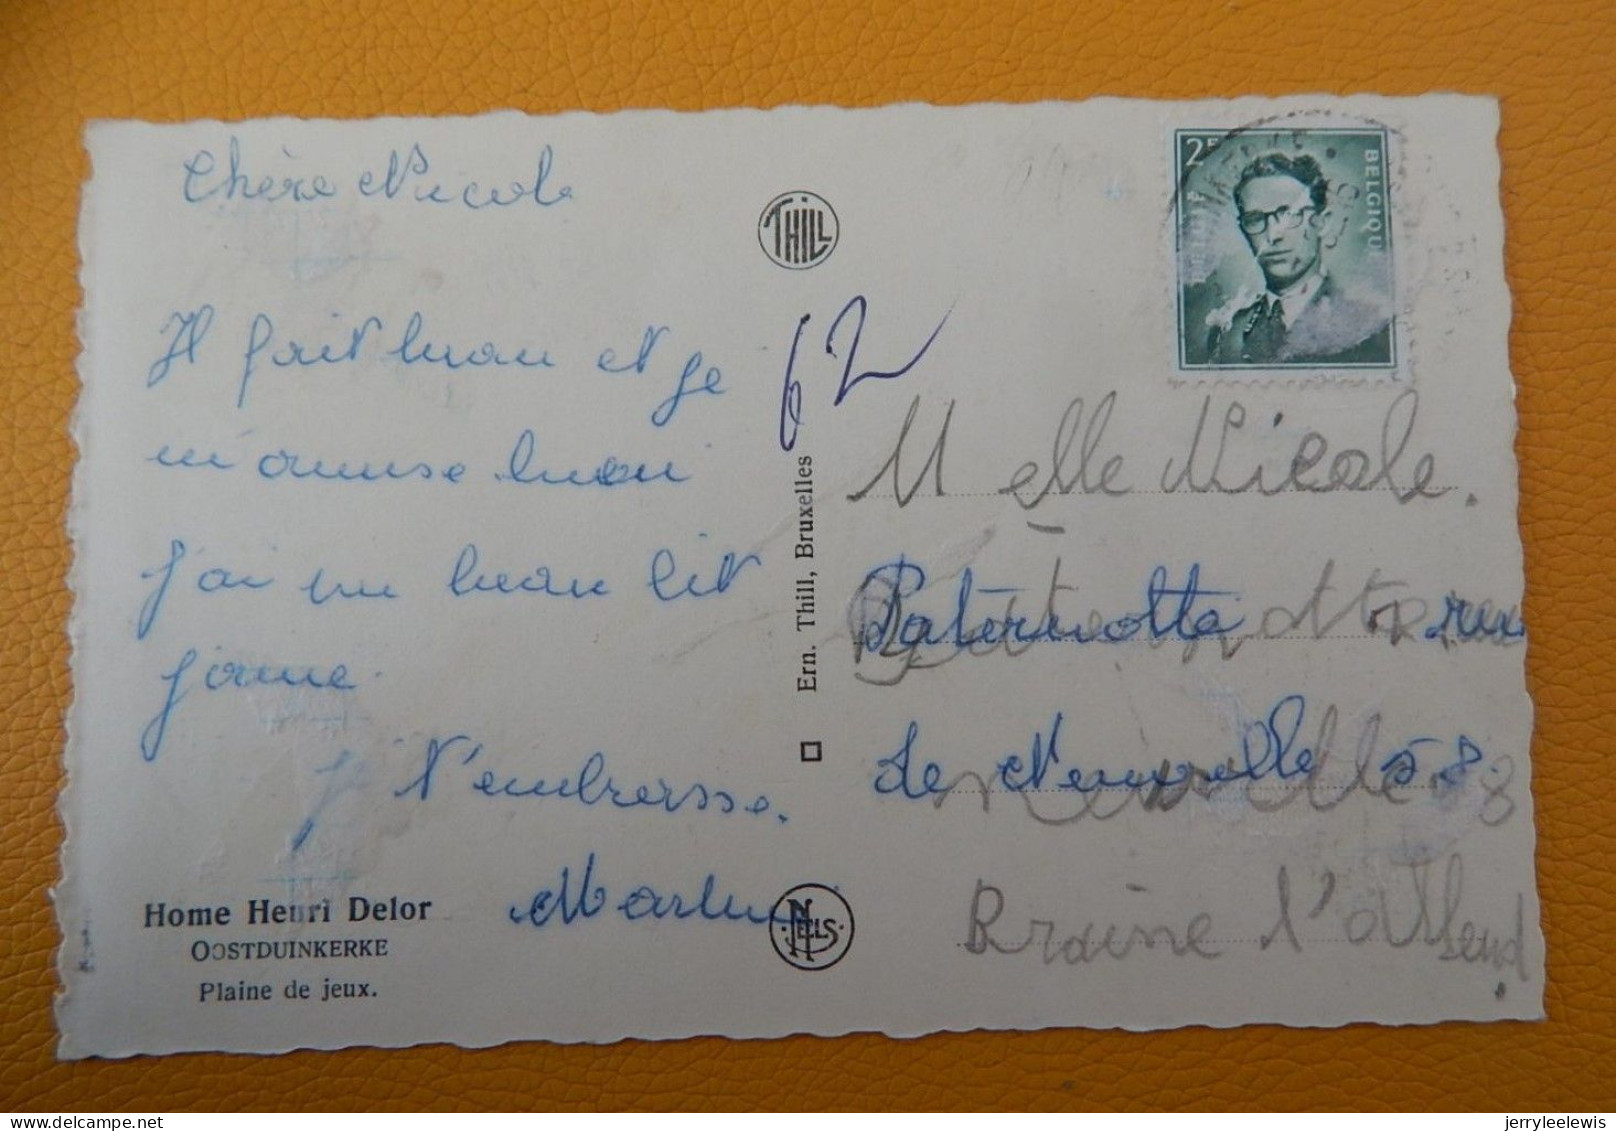 Chère Nicole
Il fait beau et je
m'amuse beau
J'ai un beau lit
jaune.
Je t'embrasse.
Home Henri Delor
OOSTDUINKERKE
Plaine de jeux.
THILL
62
Ern. Thill, Bruxelles
NELS
2F
BELGIQUE
Melle Nicole.
Paternotte rue
de Neuville 58
Braine l'Alleud.
jerryleelewis delcampe.net